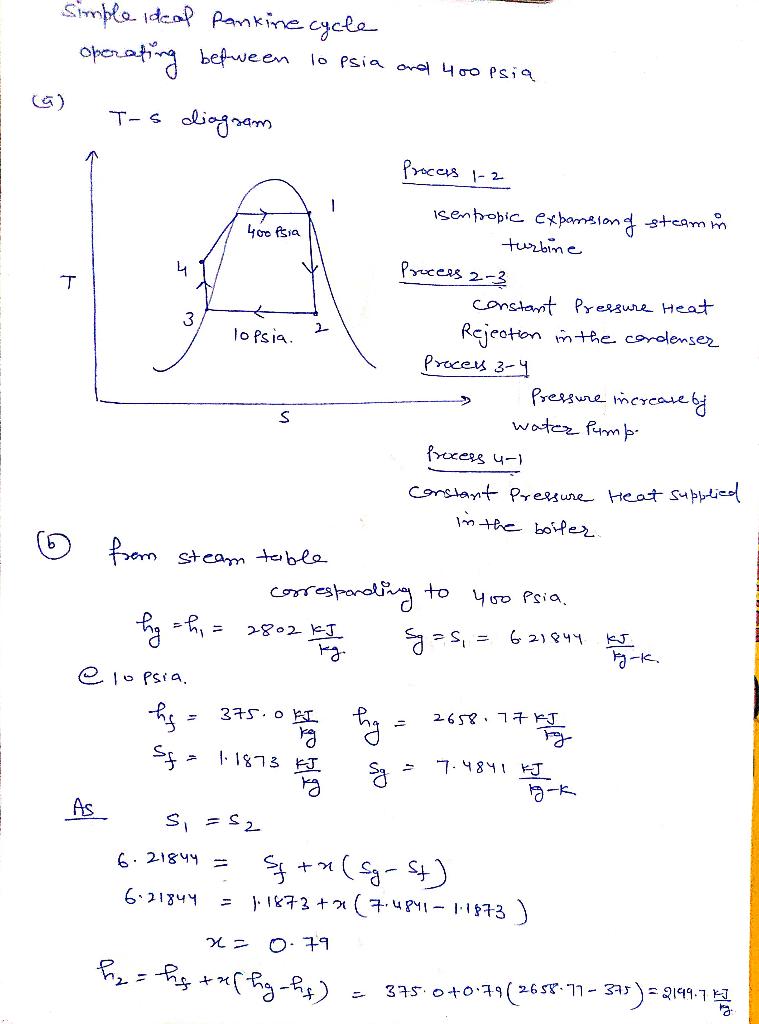 Simple ideal Rankine cycle
operating between 10 psia and 400 psia
(a)
T-s diagram
Process 1-2
isentropic expansion of steam in
turbine
Process 2-3
constant Pressure Heat
Rejection in the condenser
Process 3-4
Pressure increase by
water Pump.
Process 4-1
constant Pressure Heat supplied
in the boiler.
T
1
400 Psia
4
3
10 Psia.
2
S
(b) from steam table
corresponding to 400 Psia.
hg = h1 = 2802 KJ/kg. Sg = S1 = 6.21844 KJ/kg-K.
@ 10 Psia.
hf = 375.0 KJ/kg hg = 2658.77 KJ/kg
Sf = 1.1873 KJ/kg Sg = 7.4841 KJ/kg-K
As S1 = S2
6.21844 = Sf + x (Sg - Sf)
6.21844 = 1.1873 + x (7.4841 - 1.1873)
x = 0.79
h2 = hf + x (hg - hf) = 375.0 + 0.79 (2658.77 - 375) = 2199.7 KJ/kg.